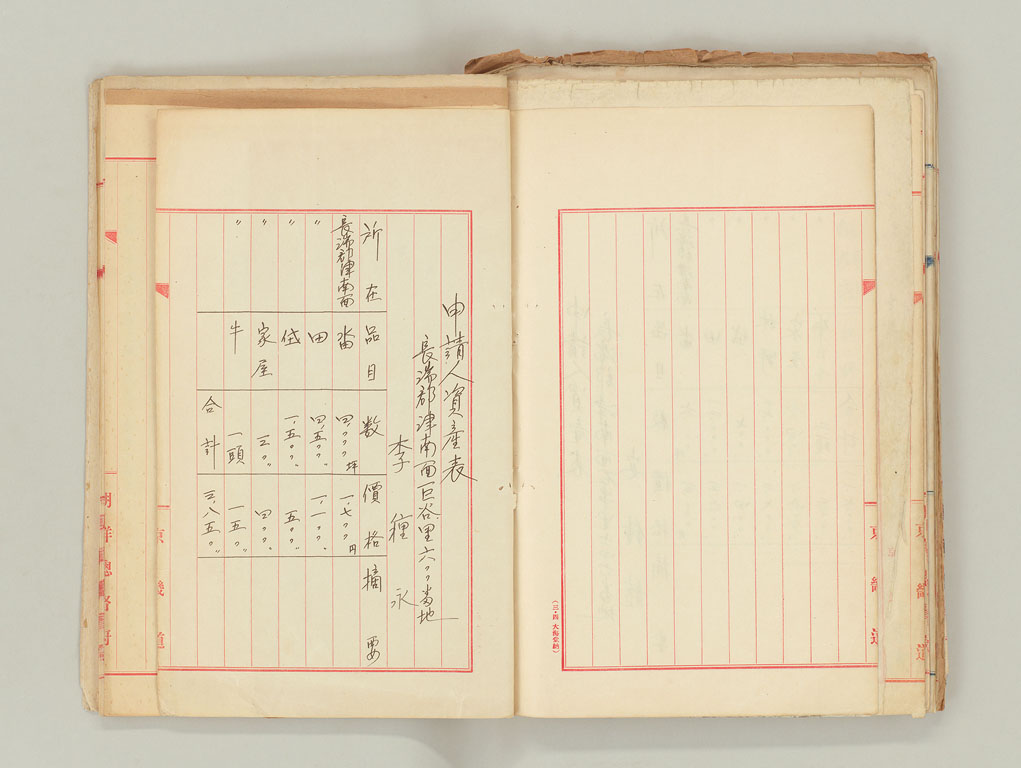 東畿道
(三・四 大海堂納)
申請人資産表
長湍郡津南面巨谷里六〇〇番地
李種永
所在 品目 数 價格 摘要
長湍郡津南面 畓 四、〇〇〇坪 一、七〇〇円
〃 田 四、五〇〇〃 一、一〇〇〃
〃 垈 一、五〇〇〃 五〇〇〃
〃 家屋 四〇〇〃
〃 牛 一頭 一五〇〃
合計 三、八五〇〃
京畿道
朝鮮總督府